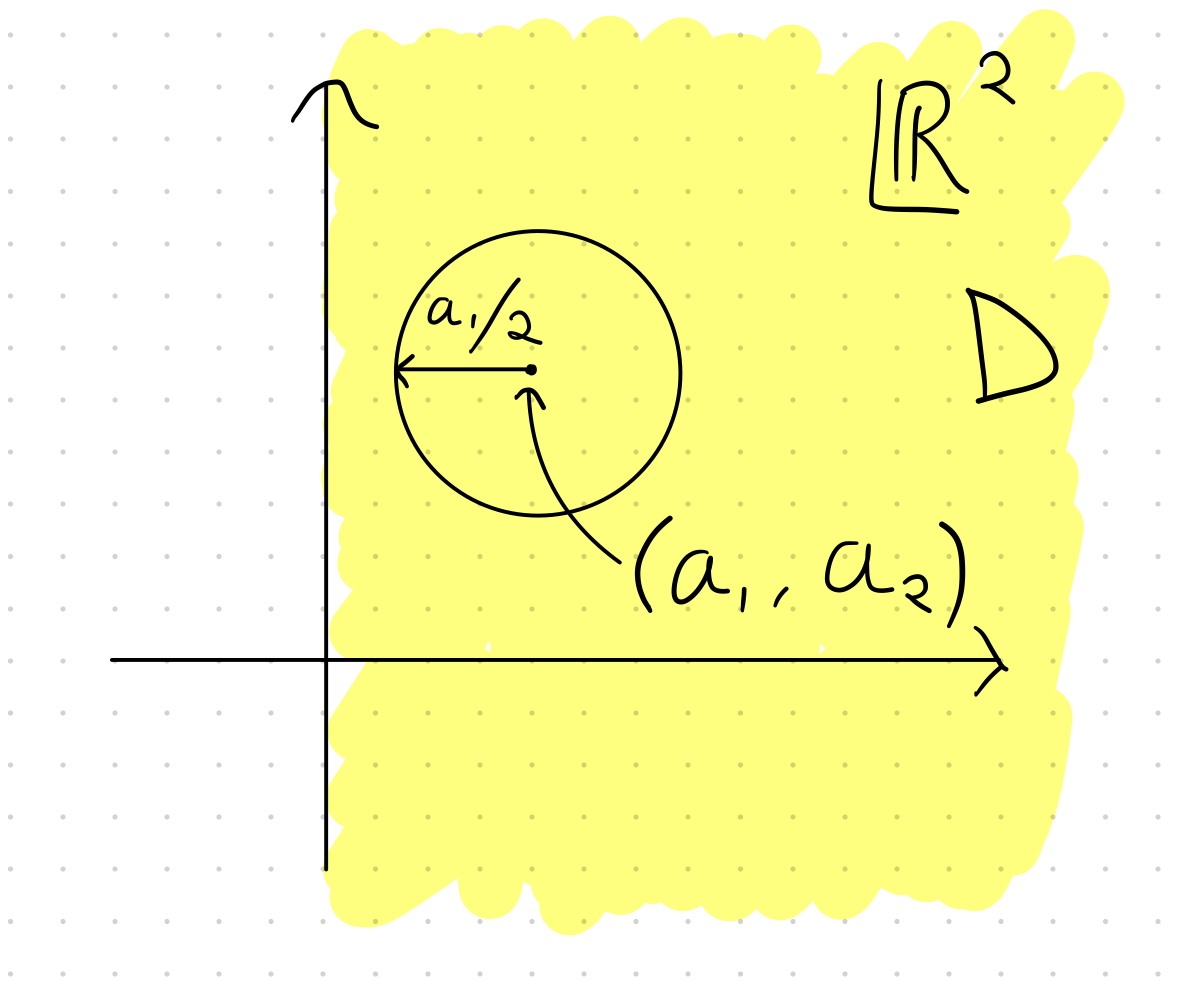 ℝ²
a₁/2
D
(a₁, a₂)